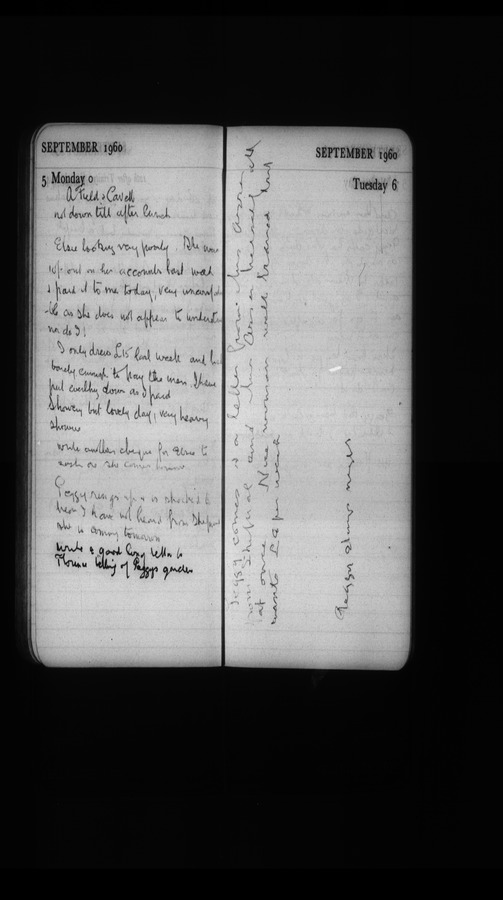 SEPTEMBER 1960
5 Monday
A Field & Cavell
not down till after lunch
Elsie looking very poorly. She was
on her accounts last week
& paid it to me today, very
as she does not appear to understand
nor do I!
I only drew £15 last week and
barely enough to pay the men. I have
put everything down as I paid
Showery but lovely day, very heavy
showers
write another cheque for Elsie to
cash as she comes
Peggy rings up & is shocked to
hear I have not heard from
she is coming tomorrow
write a good long letter to
Florence telling of Peggys garden
SEPTEMBER 1960
Tuesday 6
Peggy comes & a letter from
from
at once. Nice woman well trained
wants £8 per week
Peggy stays night